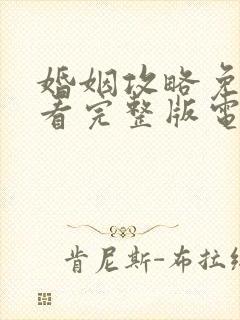 婚姻攻略免
看完整版電
肯尼斯-布拉納